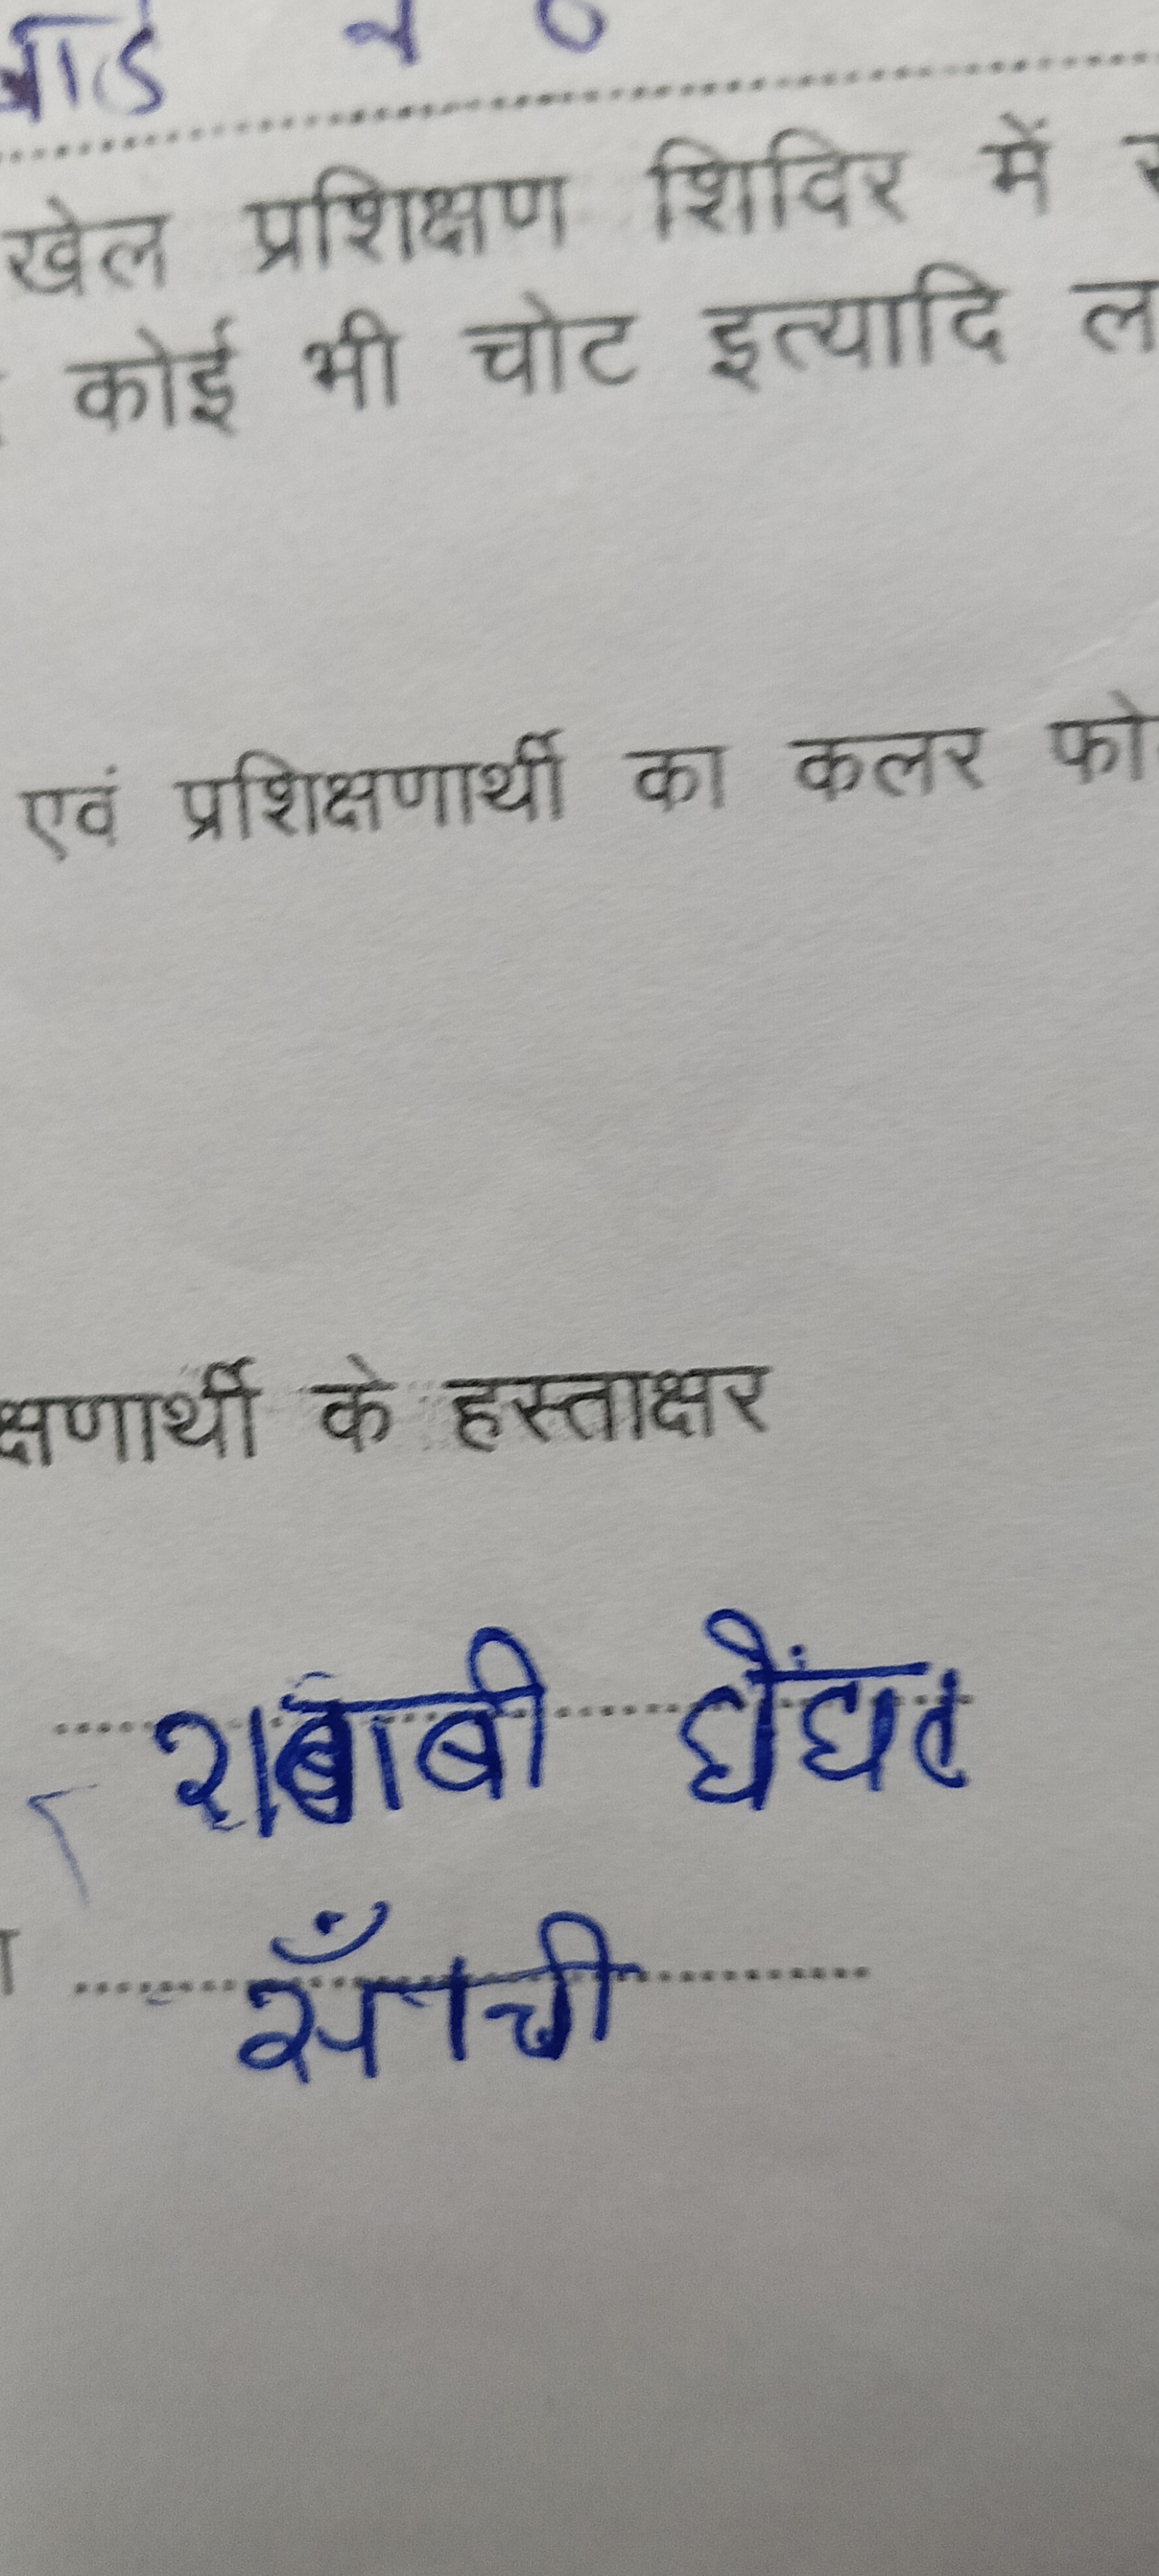 वार्ड न
खेल प्रशिक्षण शिविर में
कोई भी चोट इत्यादि ल
एवं प्रशिक्षणार्थी का कलर फो
क्षणार्थी के हस्ताक्षर
साँची